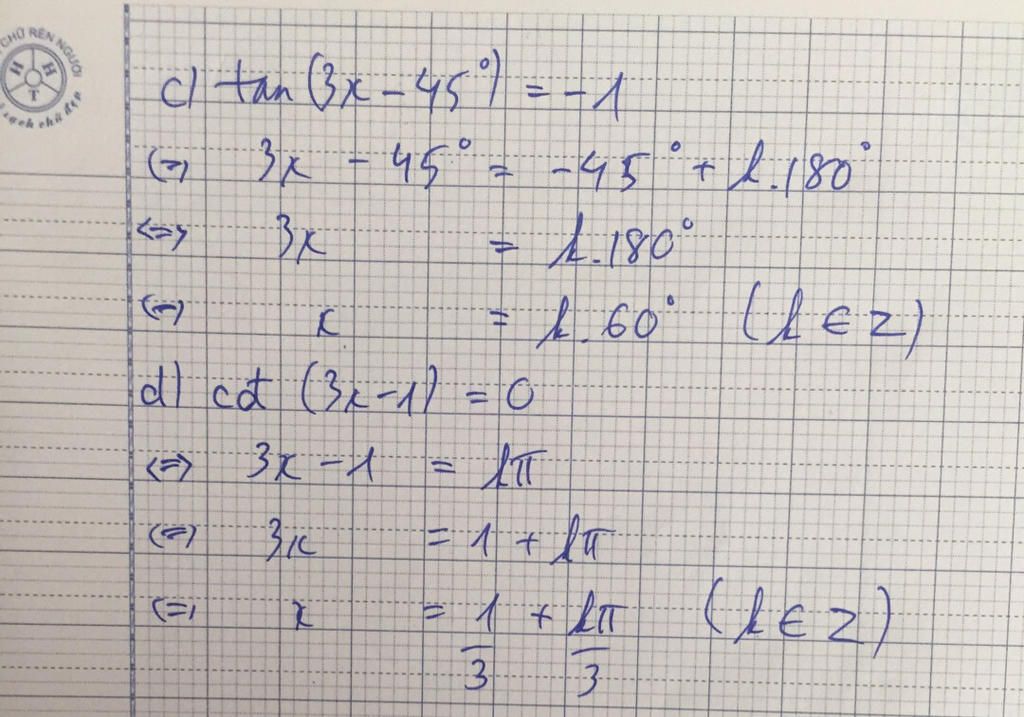 CHỮ RÈN NGƯỜI
H H
T
sạch chữ đẹp
c) tan (3x - 45°) = -1
(=) 3x - 45° = -45° + k.180°
<=> 3x = k.180°
(=) x = k.60° (k ∈ Z)
d) cot (3x-1) = 0
<=> 3x - 1 = kπ
(=) 3x = 1 + kπ
(=) x = 1/3 + kπ/3 (k ∈ Z)